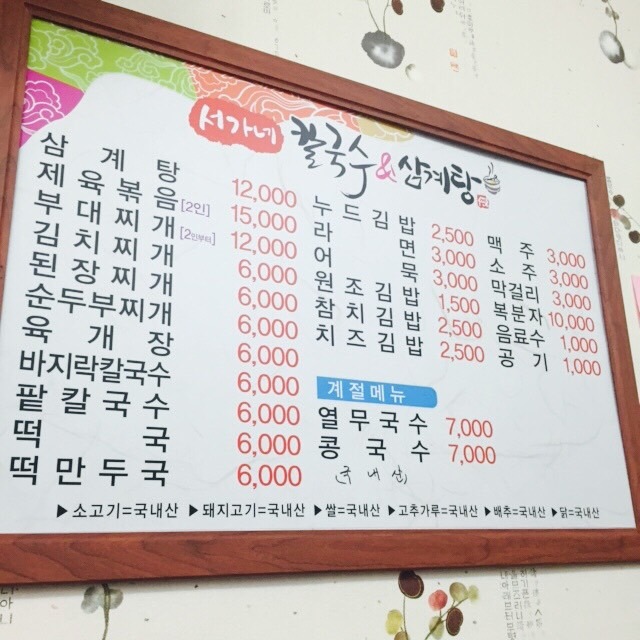 서가네 칼국수&삼계탕
삼 계 탕 12,000
제 육 볶 음 [2인] 15,000
부 대 찌 개 [2인부터] 12,000
김 치 찌 개 6,000
된 장 찌 개 6,000
순두부찌개 6,000
육 개 장 6,000
바지락칼국수 6,000
팥 칼 국 수 6,000
떡 국 6,000
떡 만 두 국 6,000
누 드 김 밥 2,500
라 면 3,000
어 묵 3,000
원 조 김 밥 1,500
참 치 김 밥 2,500
치 즈 김 밥 2,500
계절메뉴
열 무 국 수 7,000
콩 국 수 7,000
(국내산)
맥 주 3,000
소 주 3,000
막걸리 3,000
복분자 10,000
음료수 1,000
공 기 1,000
▶소고기=국내산 ▶돼지고기=국내산 ▶쌀=국내산 ▶고추가루=국내산 ▶배추=국내산 ▶닭=국내산